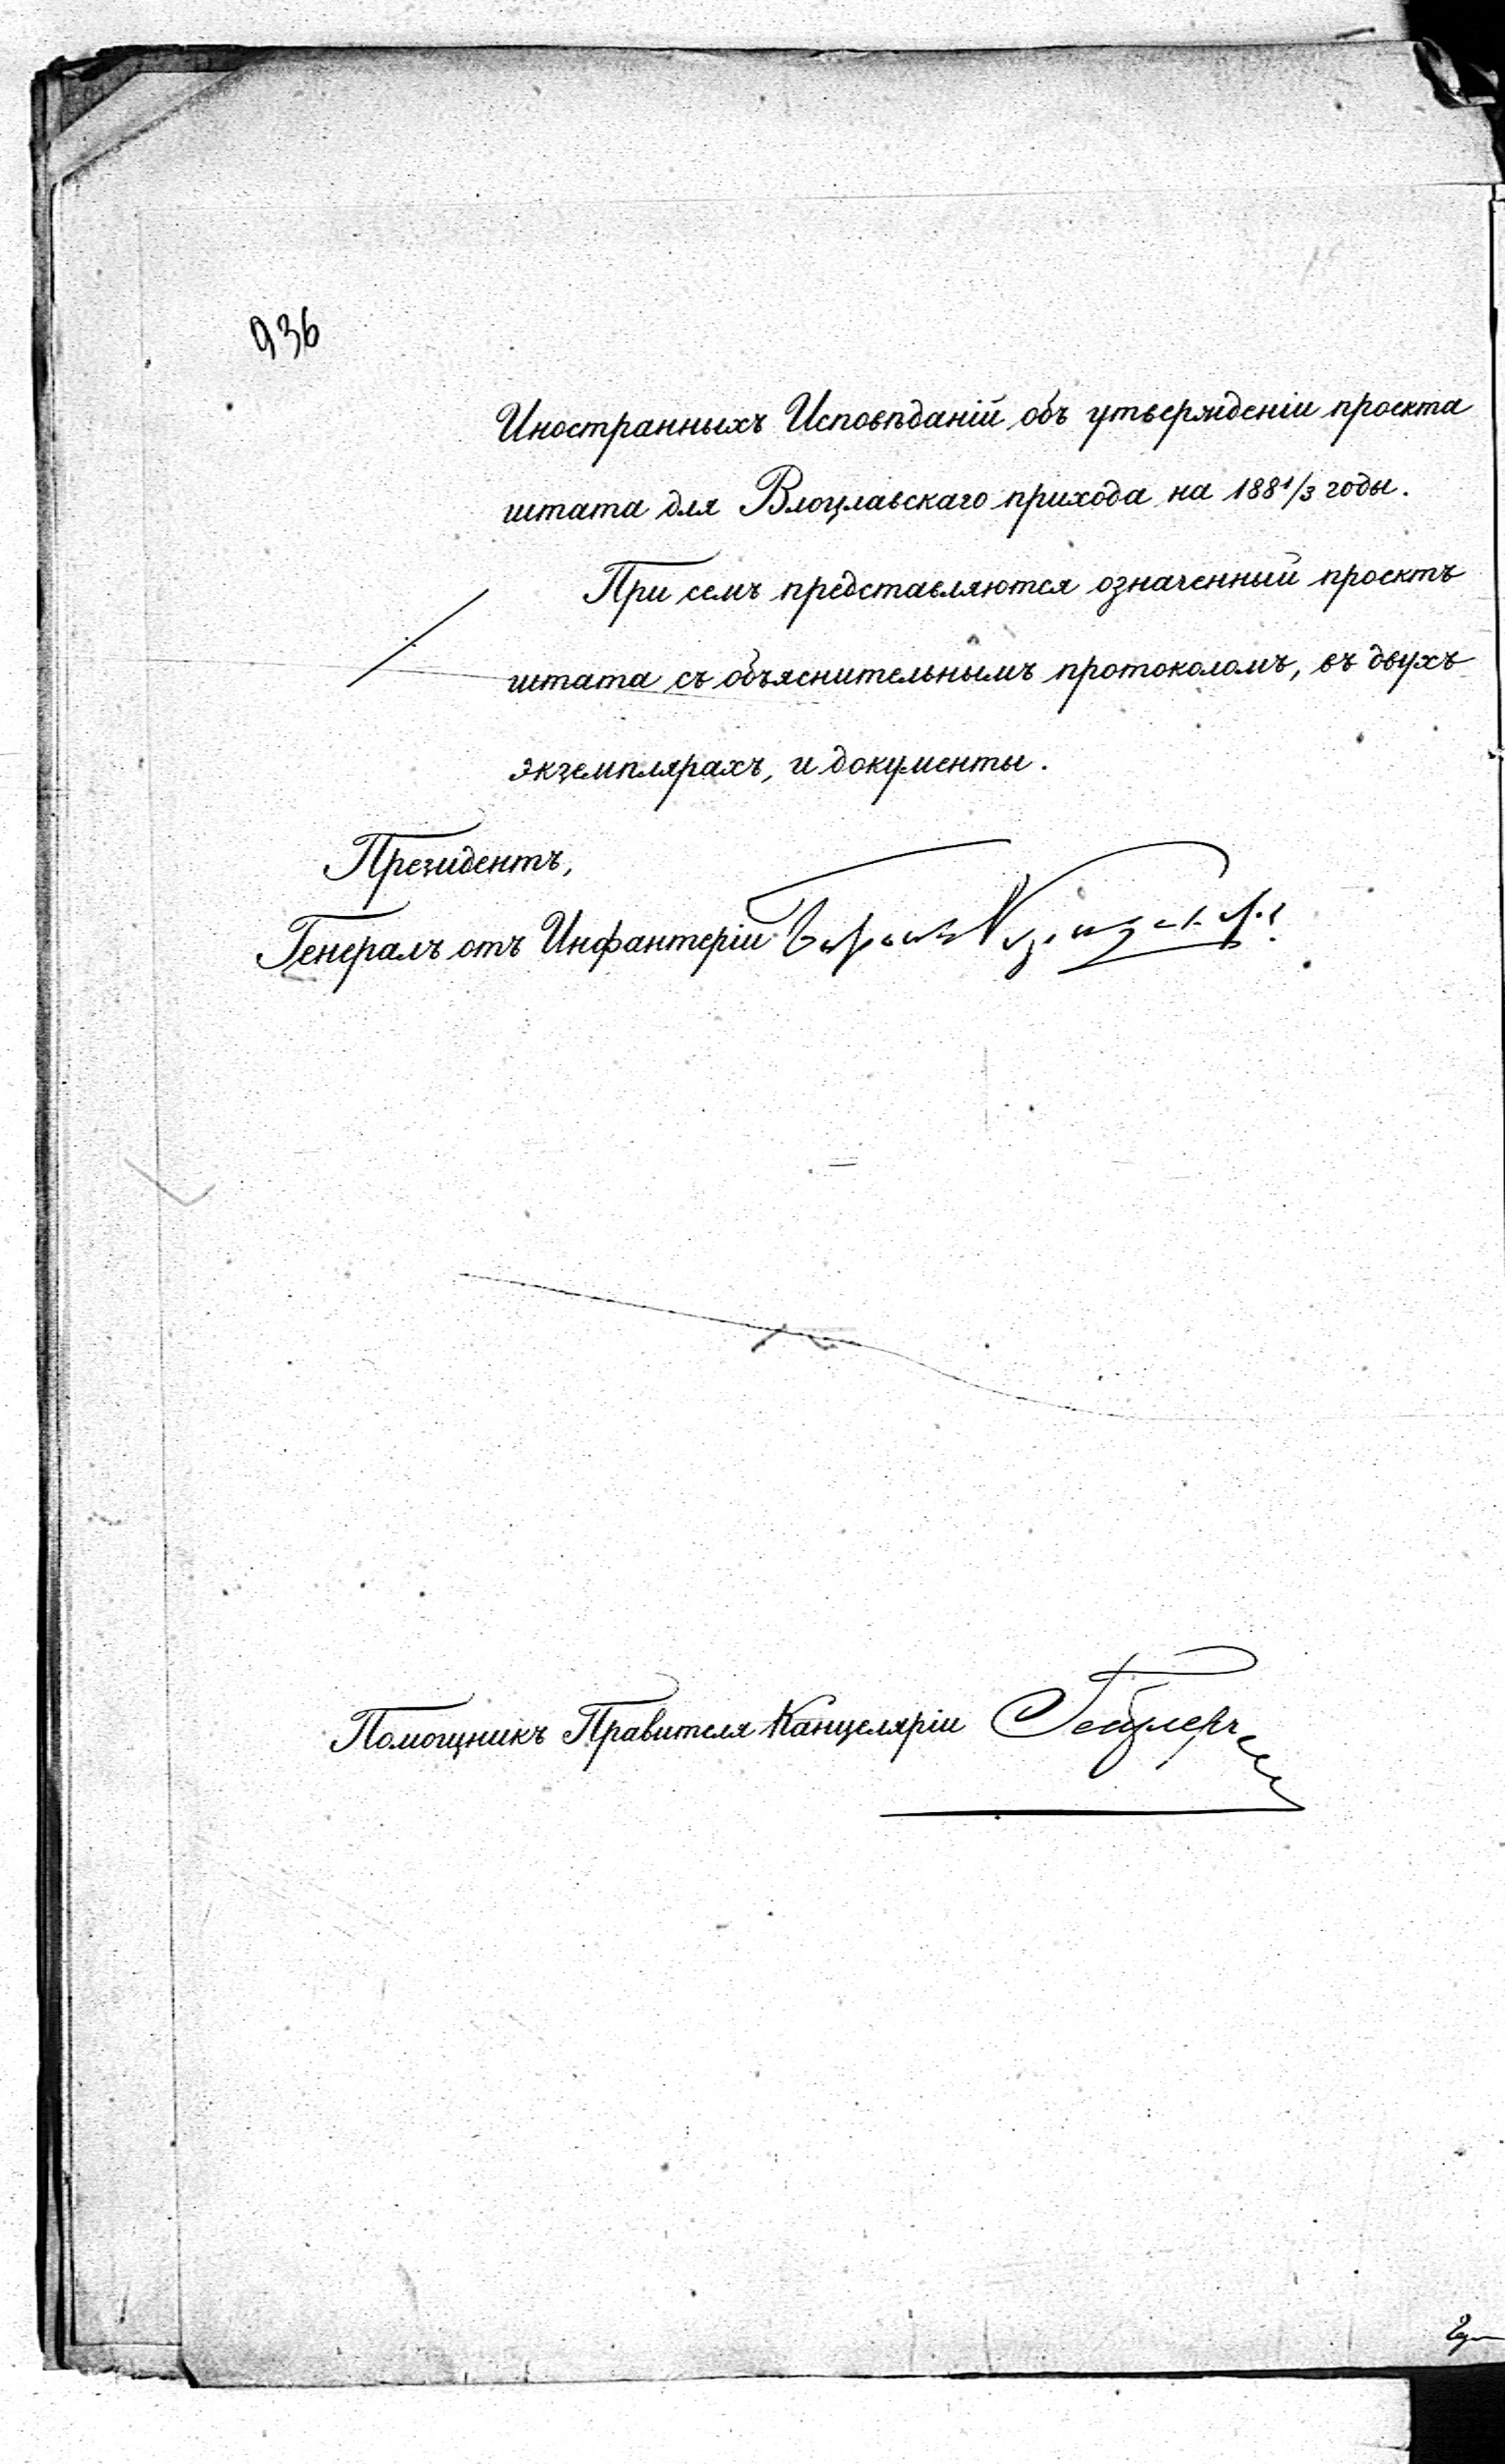 936
Иностранныхъ Исповѣданій объ утвержденіи проекта
штата для Влоцлавскаго прихода на 188¹/3 годы.
При семъ представляются означенный проектъ
штата съ объяснительнымъ протоколомъ, въ двухъ
экземплярахъ, и документы.
Президентъ,
Генералъ отъ Инфантеріи Баронъ
Помощникъ Правителя Канцеляріи